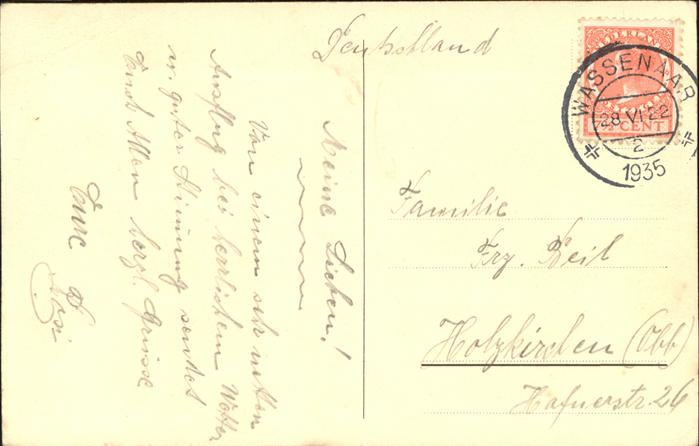 Meine Lieben!
Von einem sehr netten
Ausflug bei herrlichem Wetter
u. guter Stimung sendet
Euch Allen herzl. Grüsse
Eure
Deutschland
NEDERLAND
7½ CENT
WASSENAAR
28 VI 22
2
1935
Familie
Frz. Beil
Holzkirchen (Obb)
Hafnerstr. 26